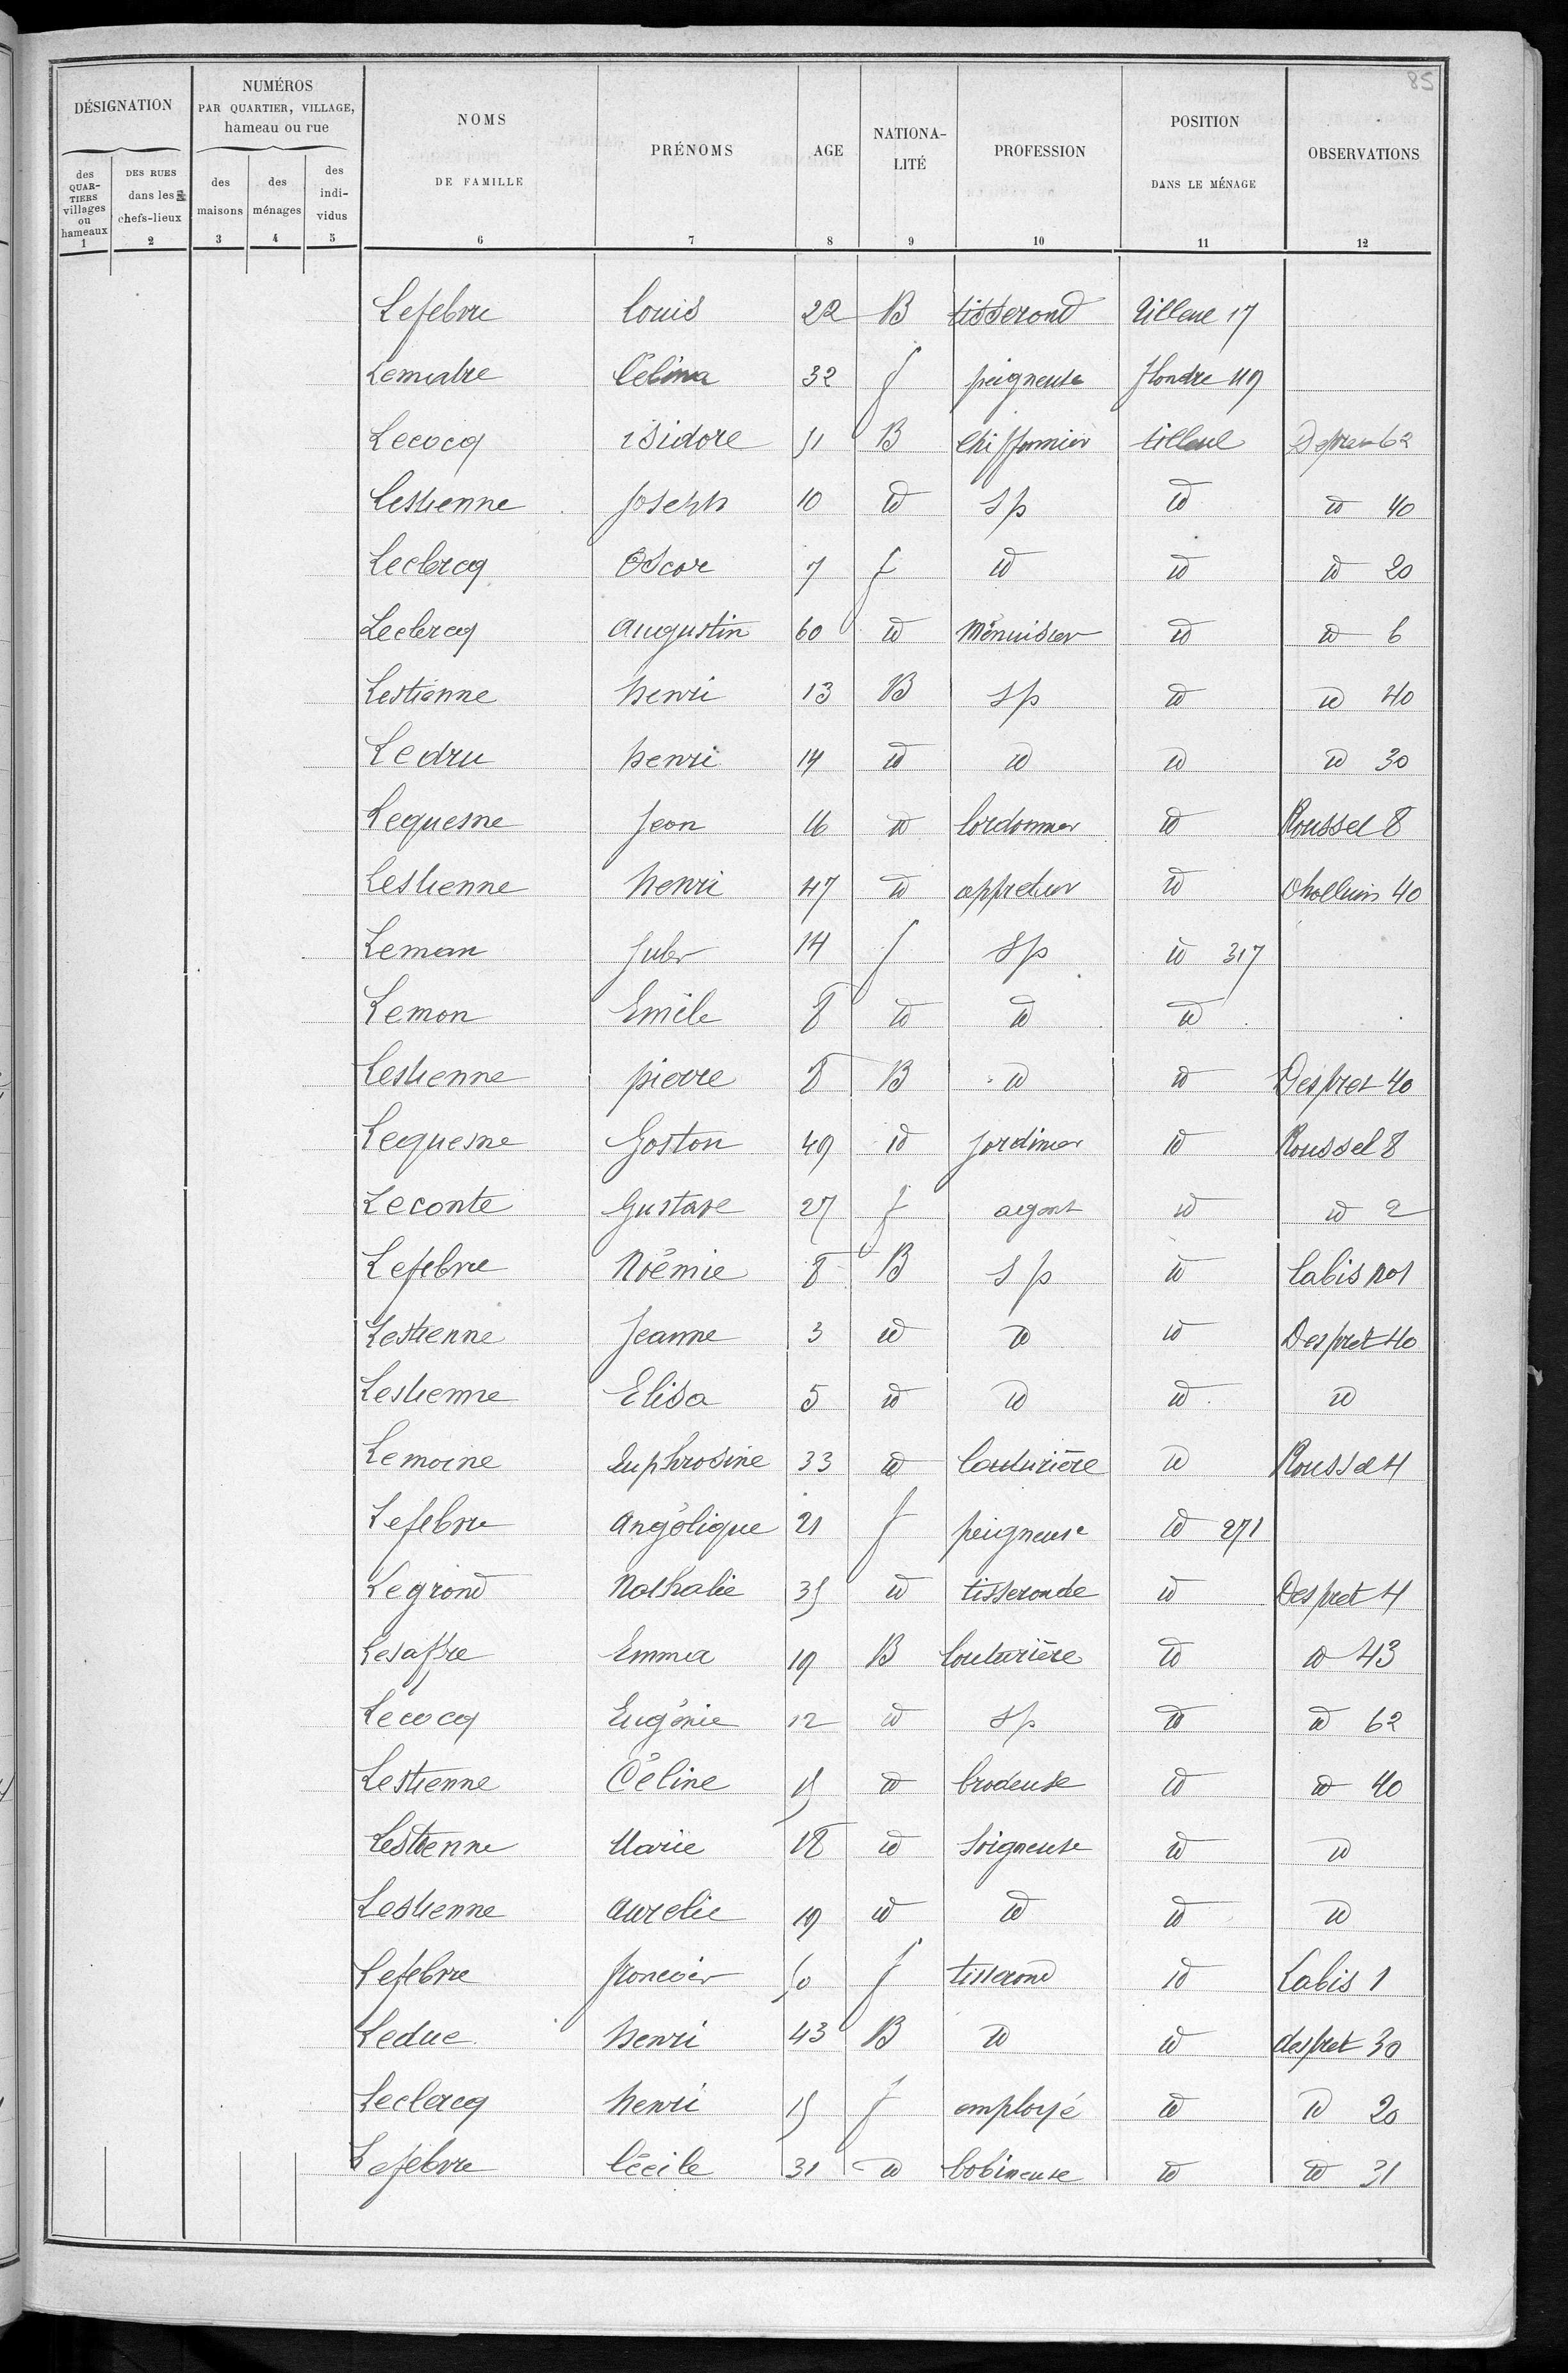 85
DÉSIGNATION NUMÉROS PAR QUARTIER, VILLAGE, hameau ou rue NOMS DE FAMILLE PRÉNOMS AGE NATIONALITÉ PROFESSION POSITION DANS LE MÉNAGE OBSERVATIONS
des QUARTIERS villages ou hameaux DES RUES dans les chefs-lieux des maisons des ménages des individus
1 2 3 4 5 6 7 8 9 10 11 12
Lefebvre Louis 22 B tisserand tilleul 17
Lemaire Célina 32 f peigneuse flandre 119
Lecocq isidore 51 B Chiffonnier tilleul Despret 62
Lestienne Joseph 10 id sp id id 40
Leclercq Oscar 7 f id id id 20
Leclercq Augustin 60 id Menuisier id id 6
Lestienne henri 13 B sp id id 40
Ledru henri 14 id id id id 30
Lequesne Jean 16 id Cordonnier id Roussel 8
Lestienne henri 47 id appreteur id 40
Leman Jules 14 f sp id 317
Leman Emile 8 id id id
Lestienne pierre 8 B id id Despret 40
Lequesne Gaston 49 id Jardinier id Roussel 8
Leconte Gustave 27 f agent id id 2
Lefebvre Noémie 8 B sp id Labis no1
Lestienne Jeanne 3 id id id Despret 40
Lestienne Elisa 5 id id id id
Lemoine Euphrosine 33 id Couturière id Roussel 4
Lefebvre Angélique 21 f peigneuse id 271
Legrand Nathalie 35 id tisserande id Despret 4
Lesaffre Emma 19 B Couturière id id 43
Lecocq Eugénie 12 id sp id id 62
Lestienne Céline 15 id brodeuse id id 40
Lestienne Marie 18 id soigneuse id id
Lestienne Aurelie 19 id id id id
Lefebvre francois 50 f tisserand id Labis 1
Leduc henri 43 B id id despret 30
Leclercq henri 15 f employé id id 20
Lefebvre Cécile 31 id bobineuse id id 31